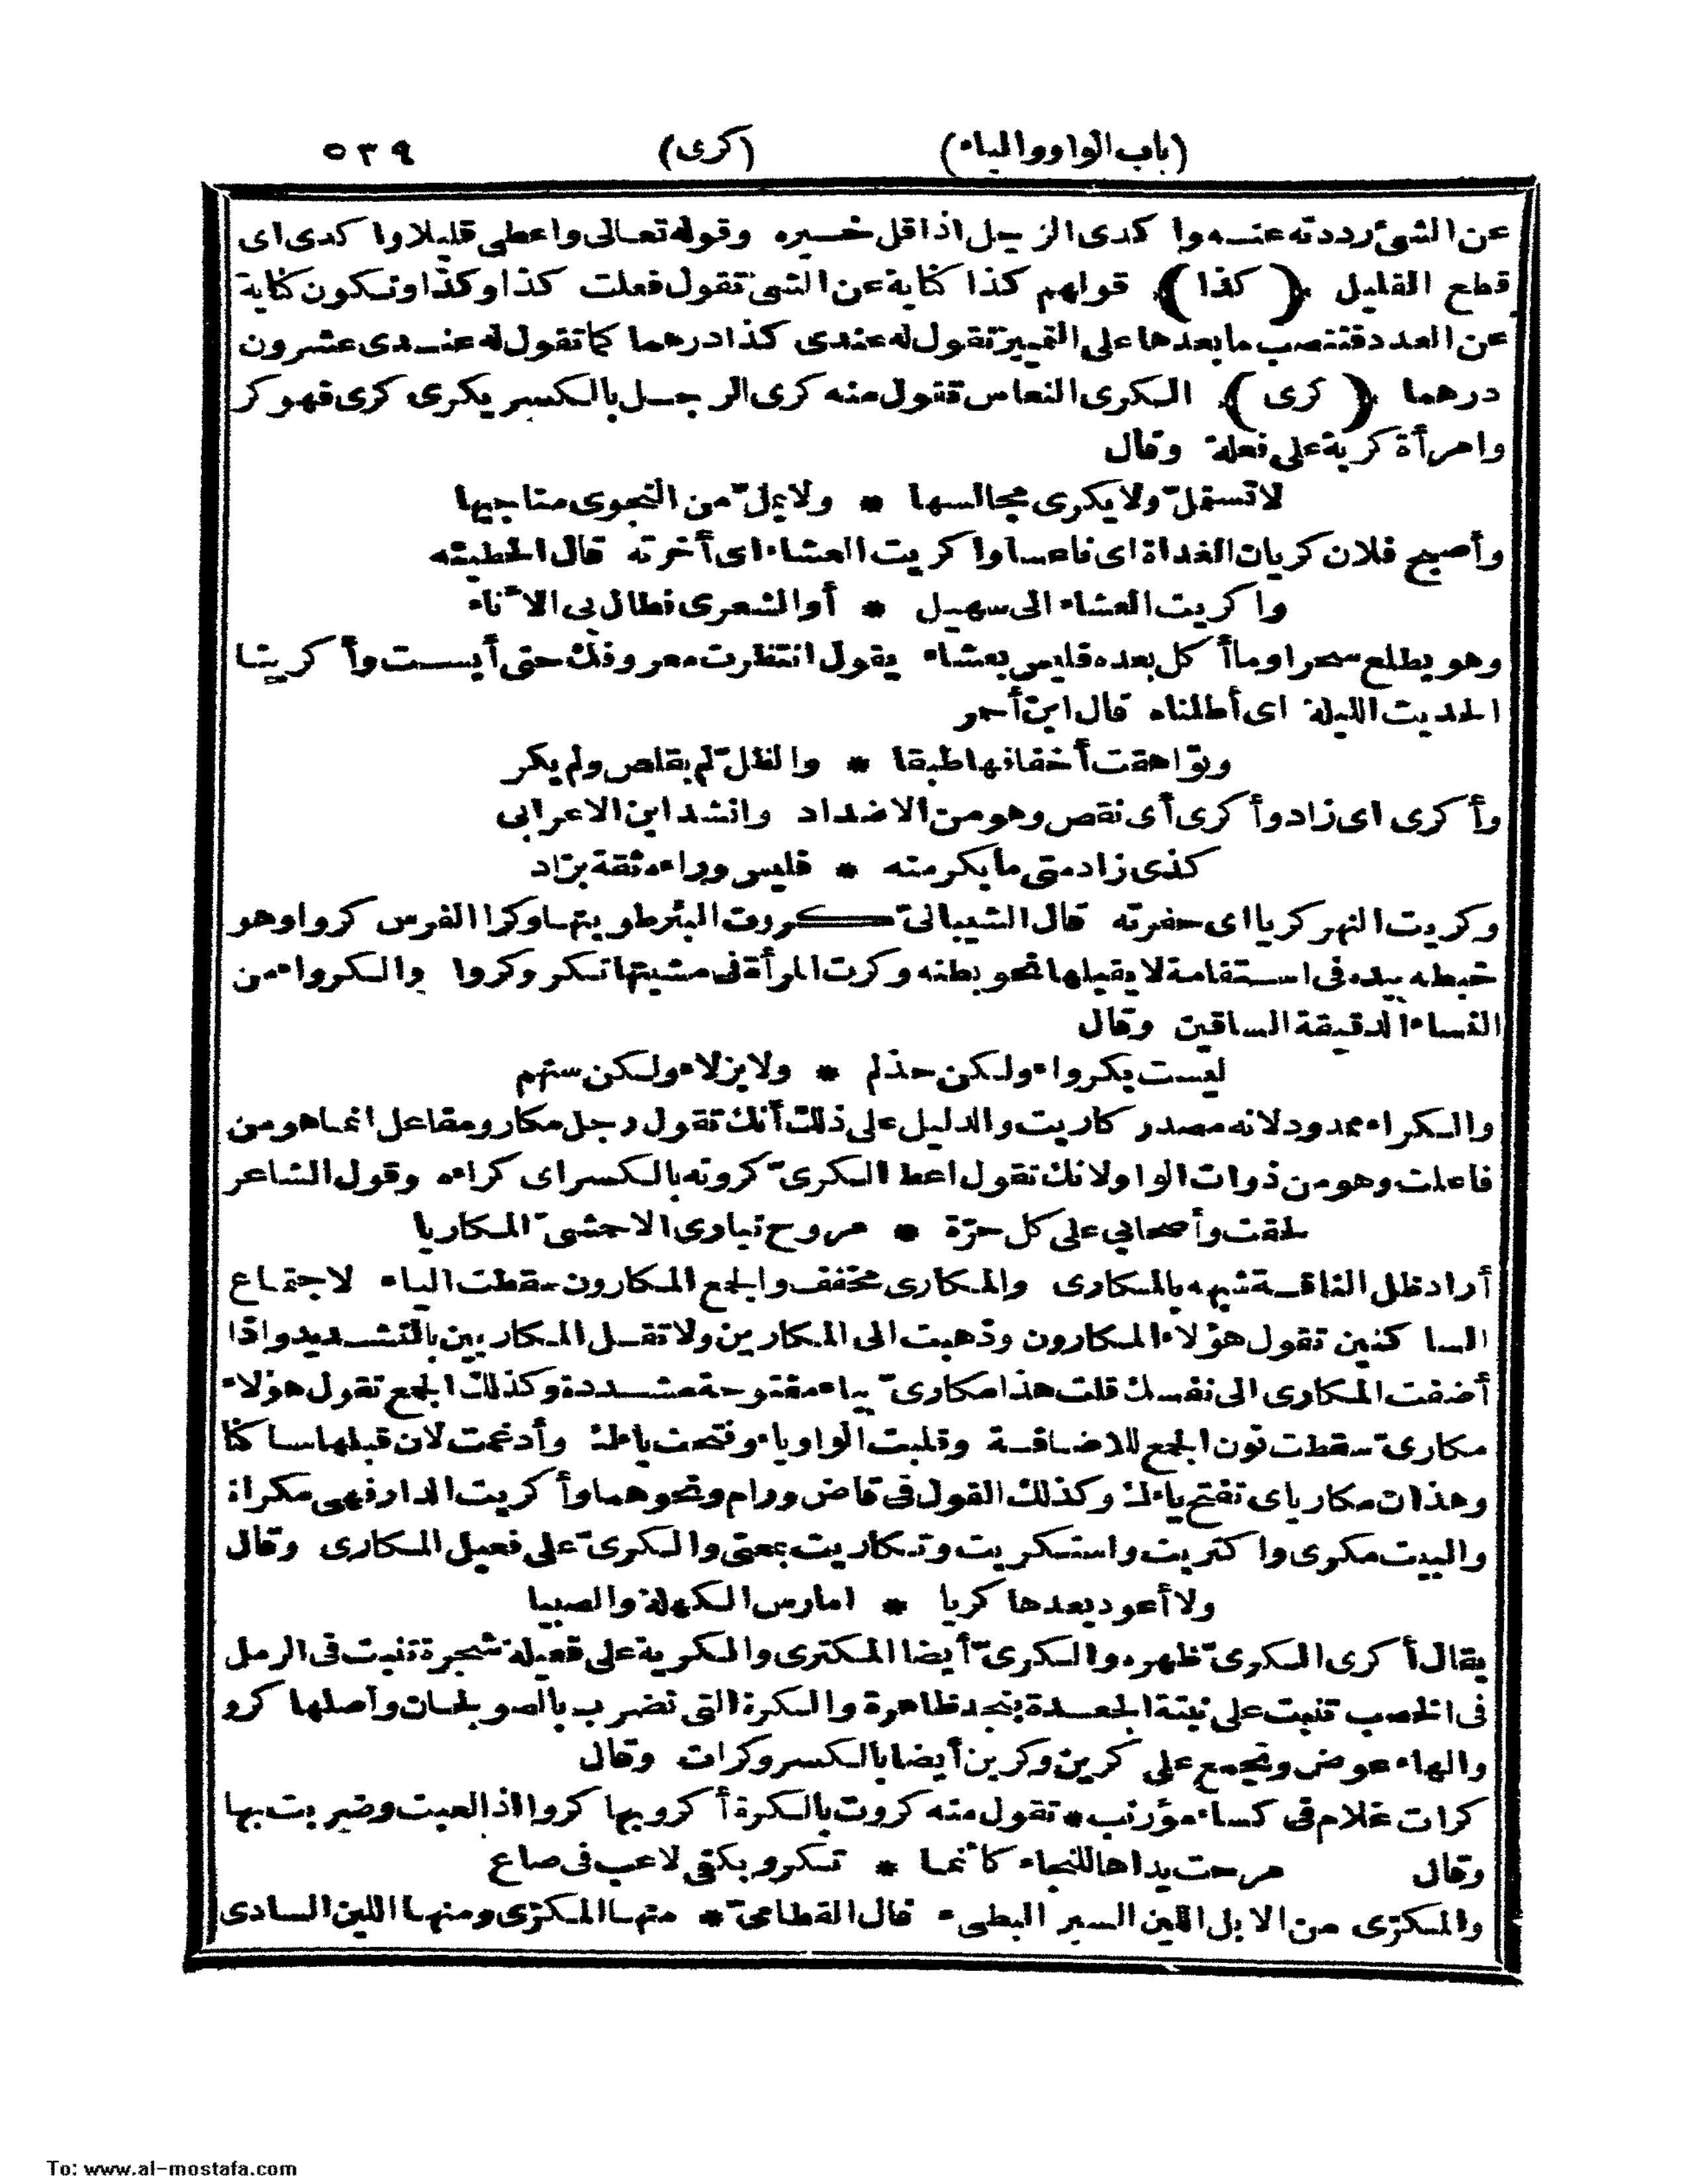 (باب الواو والياء) (كرى) ٥٣٩
عن الشئ رددته عنه وا كدى الرجل اذا قل خيره وقوله تعالى واعطى قليلا وا كدى اى
قطع القليل ﴿ كذا ﴾ قولهم كذا كناية عن الشئ تقول فعلت كذا وكذا وتكون كناية
عن العدد فتنصب ما بعدها على التمييز تقول له عندى كذا درهما كما تقول له عندى عشرون
درهما ﴿ كرى ﴾ الكرى النعاس تقول منه كرى الرجل بالكسر يكرى كرى فهو كر
وامرأة كرية على فعلة وقال
لا تستمل ولا يكرى مجالسها * ولا يمل من النجوى مناجيها
وأصبح فلان كريان الغداة اى ناعسا وا كريت العشاء اى أخرته قال الحطيئه
وا كريت العشاء الى سهيل * أو الشعرى فطال بى الأناء
وهو يطلع سحرا وما أكل بعده فليس بعشاء يقول انتظرت معروفك حتى أيست وأ كرينا
الحديث الليلة اى أطلناه قال ابن أحمر
وتواهقت أخفافها طبقا * والظل لم يقلص ولم يكر
وأ كرى اى زاد وأ كرى أى نقص وهو من الاضداد وانشد ابن الاعرابى
كذى زاد متى ما يكر منه * فليس وراءه ثقة بزاد
وكريت النهر كريا اى حفرته قال الشيبانى كروت البئر طويتها وكرا الفرس كروا وهو
خبطه بيده فى استقامة لا يقبلها نحو بطنه وكرت المرأة فى مشيتها تكر وكروا والكرواء من
النساء الدقيقة الساقين وقال
ليست بكرواء ولكن خدلم * ولا بزلاء ولكن ستهم
والكراء ممدود لانه مصدر كاريت والدليل على ذلك أنك تقول رجل مكار ومفاعل انما هو من
فاعلت وهو من ذوات الواو لانك تقول اعط الكرى كروته بالكسر اى كراءه وقول الشاعر
لحقت وأصحابى على كل حرة * مروح تبارى الاحمشى المكاريا
أراد ظل الناقة شبهه بالمكارى والمكارى مخفف والجمع المكارون سقطت الياء لاجتماع
الساكنين تقول هؤلاء المكارون وذهبت الى المكارين ولا تقل المكاريين بالتشديد واذا
أضفت المكارى الى نفسك قلت هذا مكارى بياء مفتوحة مشددة وكذلك الجمع تقول هؤلاء
مكارى سقطت نون الجمع للاضافة وقلبت الواو ياء وفتحت ياءك وأدغمت لان قبلها ساكنا
وهذان مكارياى تفتح ياءك وكذلك القول فى قاض ورام ونحوهما وأ كريت الدار فهى مكراة
والبيت مكرى وا كتريت واستكريت وتكاريت بمعنى والكرى على فعيل المكارى وقال
ولا أعود بعدها كريا * امارس الكهلة والصبيا
يقال أ كرى الكرى ظهره والكرى أيضا المكترى والكرية على فعيلة شجرة تنبت فى الرمل
فى الخصب تنبت على نبتة الجعدة بنجد ظاهرة والكرة التى تضرب بالصولجان وأصلها كرو
والهاء عوض وتجمع على كرين وكرين أيضا بالكسر وكرات وقال
كرات غلام فى كساء مؤرنب * تقول منه كروت بالكرة أ كرو بها كروا اذا لعبت وضربت بها
وقال مرحت يداها للنجاء كأنما * تكرو بكفى لاعب فى صاع
والمكرى من الابل اللين السير البطىء قال القطامى * منها المكرى ومنها اللين السادى
To: www.al-mostafa.com